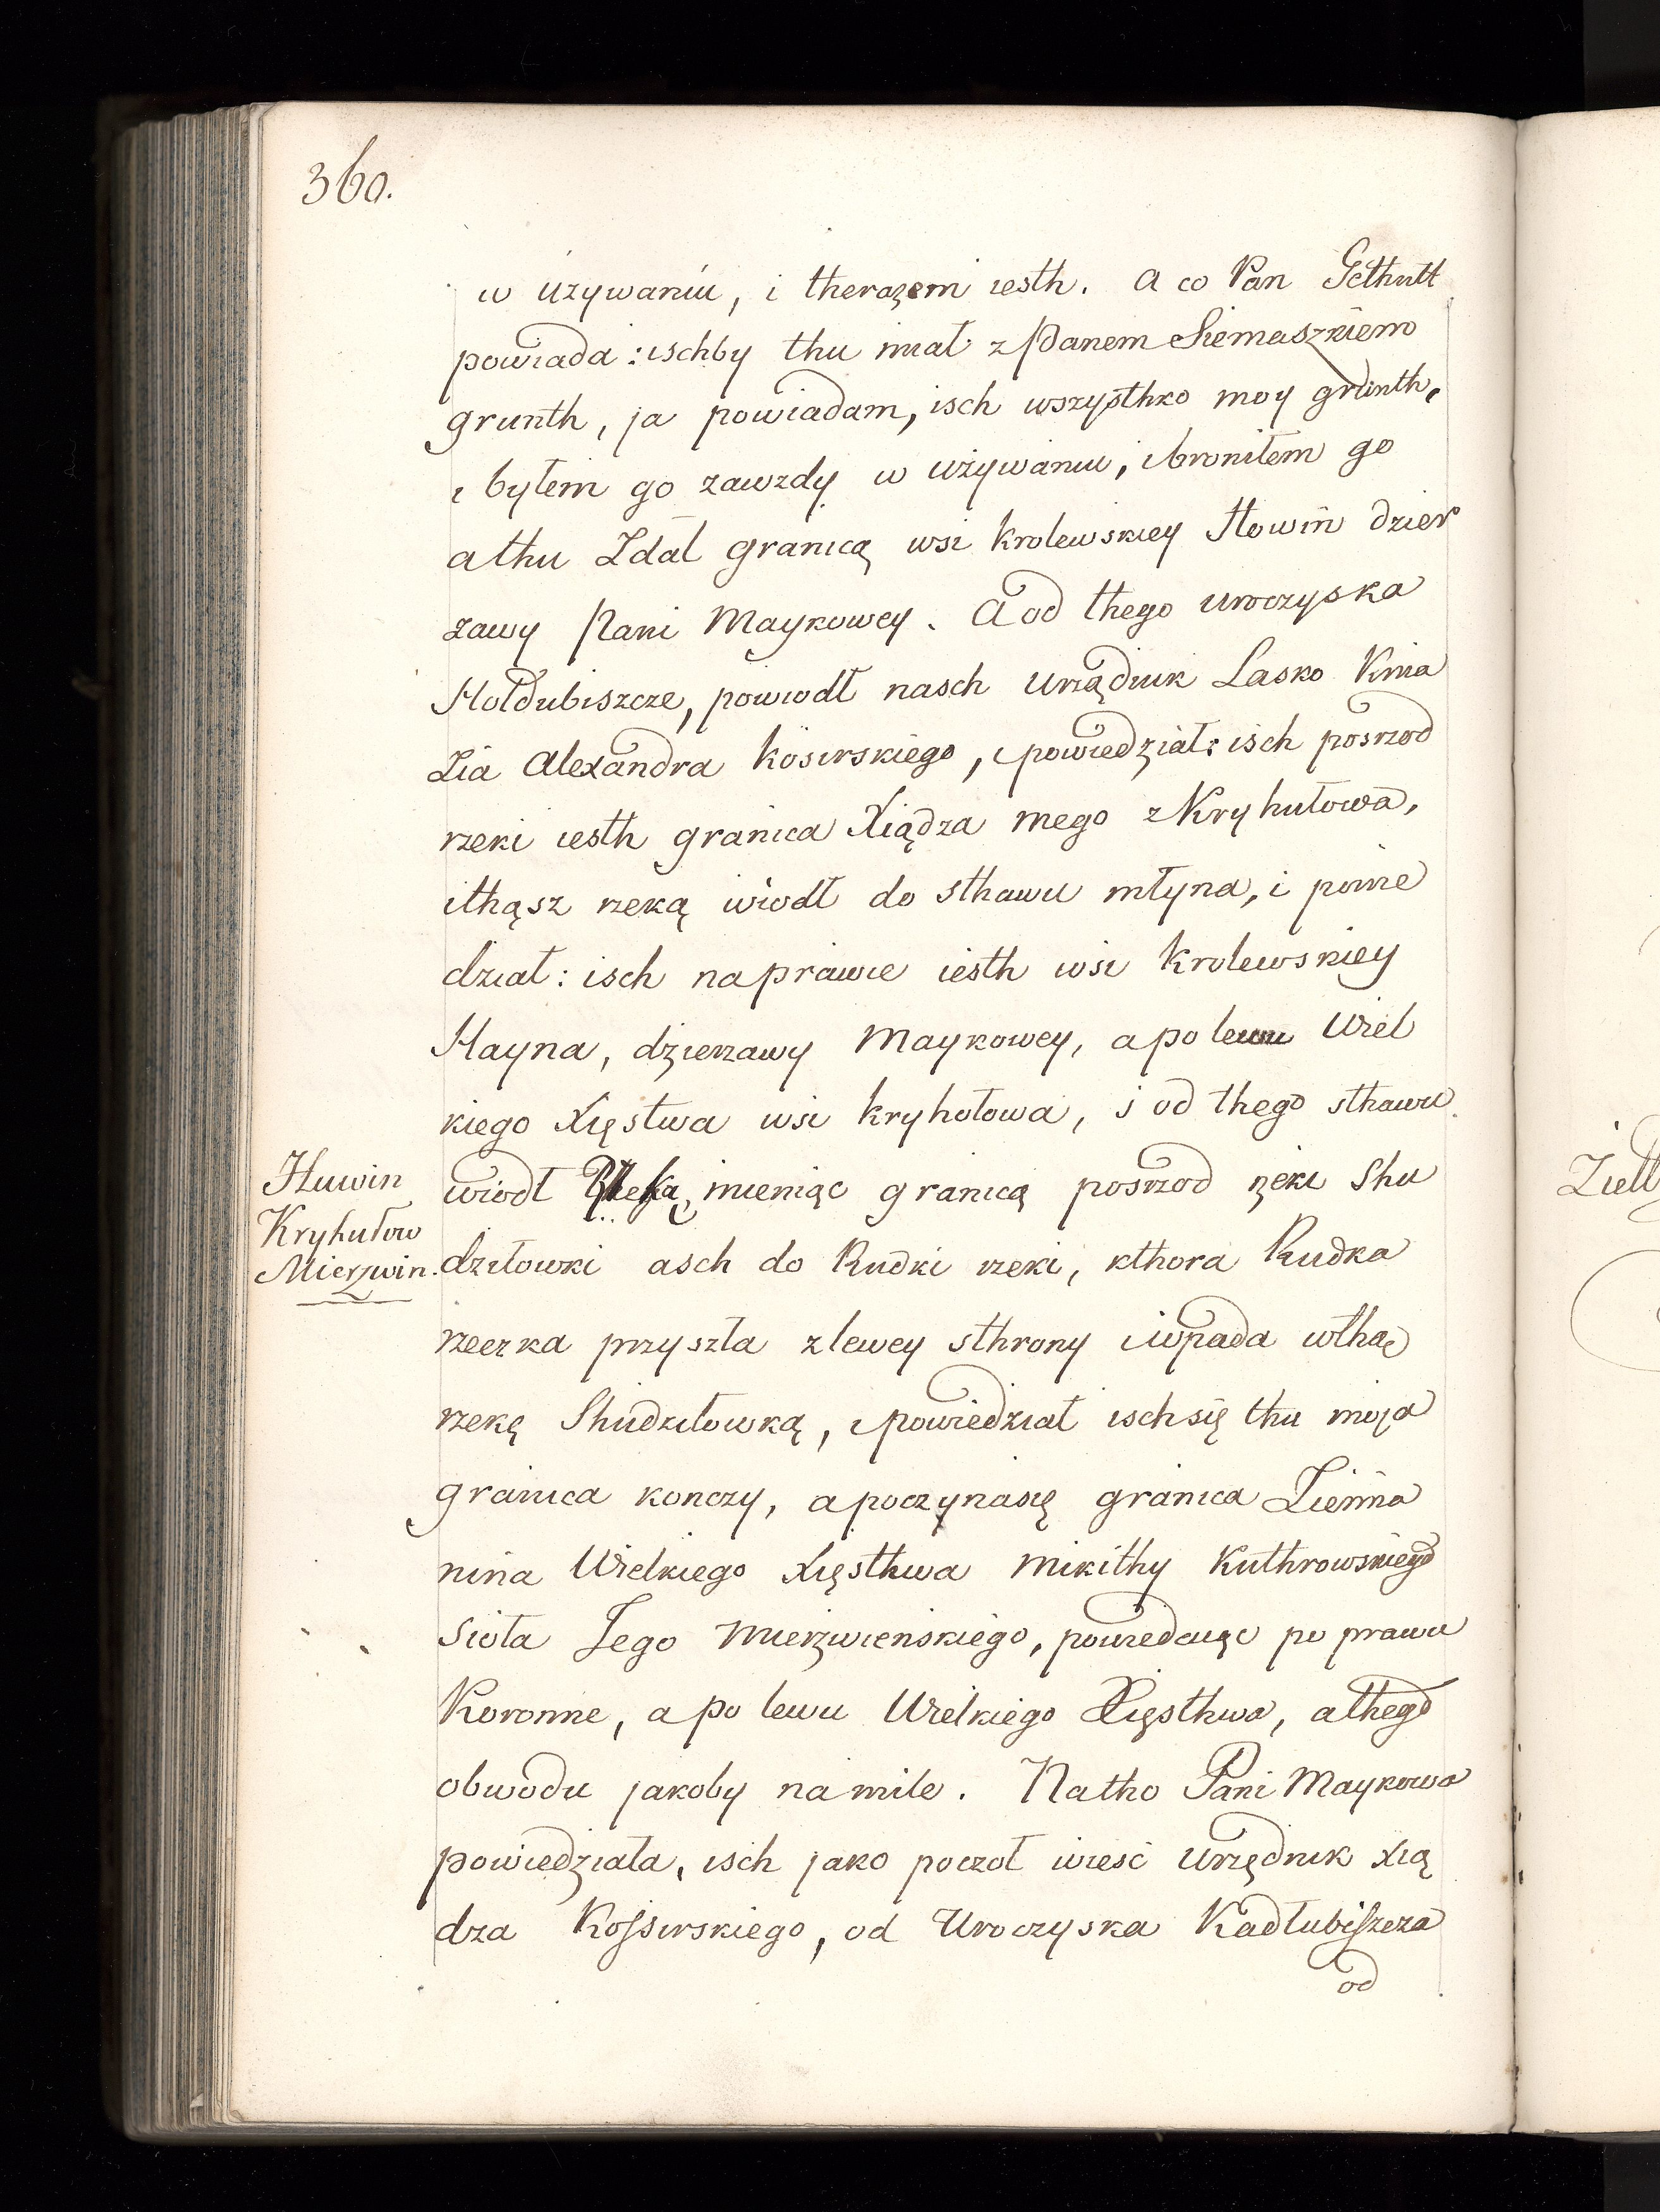 360.
w używaniu, i therazem iesth. A co Pan Gethutt
powiada: ischby thu miał z Panem Siemaszkiem
grunth, ja powiadam, isch wszysthko moy grunth,
i byłem go zawzdy w używaniu, i broniłem go
a thu Zdał granicą wsi krolewskiey Ilowin dzier
zawy Pani Maykowey. A od thego uroczyska
Hołdubiszcze, powiodł nasch Urządnik Lasko Knia
zia Alexandra Kosirskiego, i powiedział: isch posrzod
rzeki iesth granica Xiądza mego z Kryhułowa,
i thąsz rzeką wiodł do sthawu młyna, i powie
dział: isch na prawie iesth wsi Krolewskiey
Hayna, dzierzawy Maykowey, a po lewu Wiel
kiego Xięstwa wsi kryhołowa, i od thego sthawu
Huwin
Kryhułow
Mierzwin.
wiodł Rzeką mieniąc granicą posrzod rzeki Shu
dziłowki asch do Rudki rzeki, kthora Rudka
rzeczka przyszła z lewey sthrony i wpada w thą
rzekę Shudziłowką, i powiedział isch się thu moja
granica konczy, a poczyna się granica Ziemia
nina Wielkiego Xięsthwa Mikithy Kuthrowskiego
Sioła Jego Mierzwienskiego, powiedaiąc po prawu
Koronne, a po lewu Wielkiego Xięsthwa, a thego
obwodu jakoby na mile. Na tho Pani Maykowa
powiedziała, isch jako poczoł wiesć Urzędnik Xią
dza Kossirskiego, od Uroczyska Kadłubiszcza
od